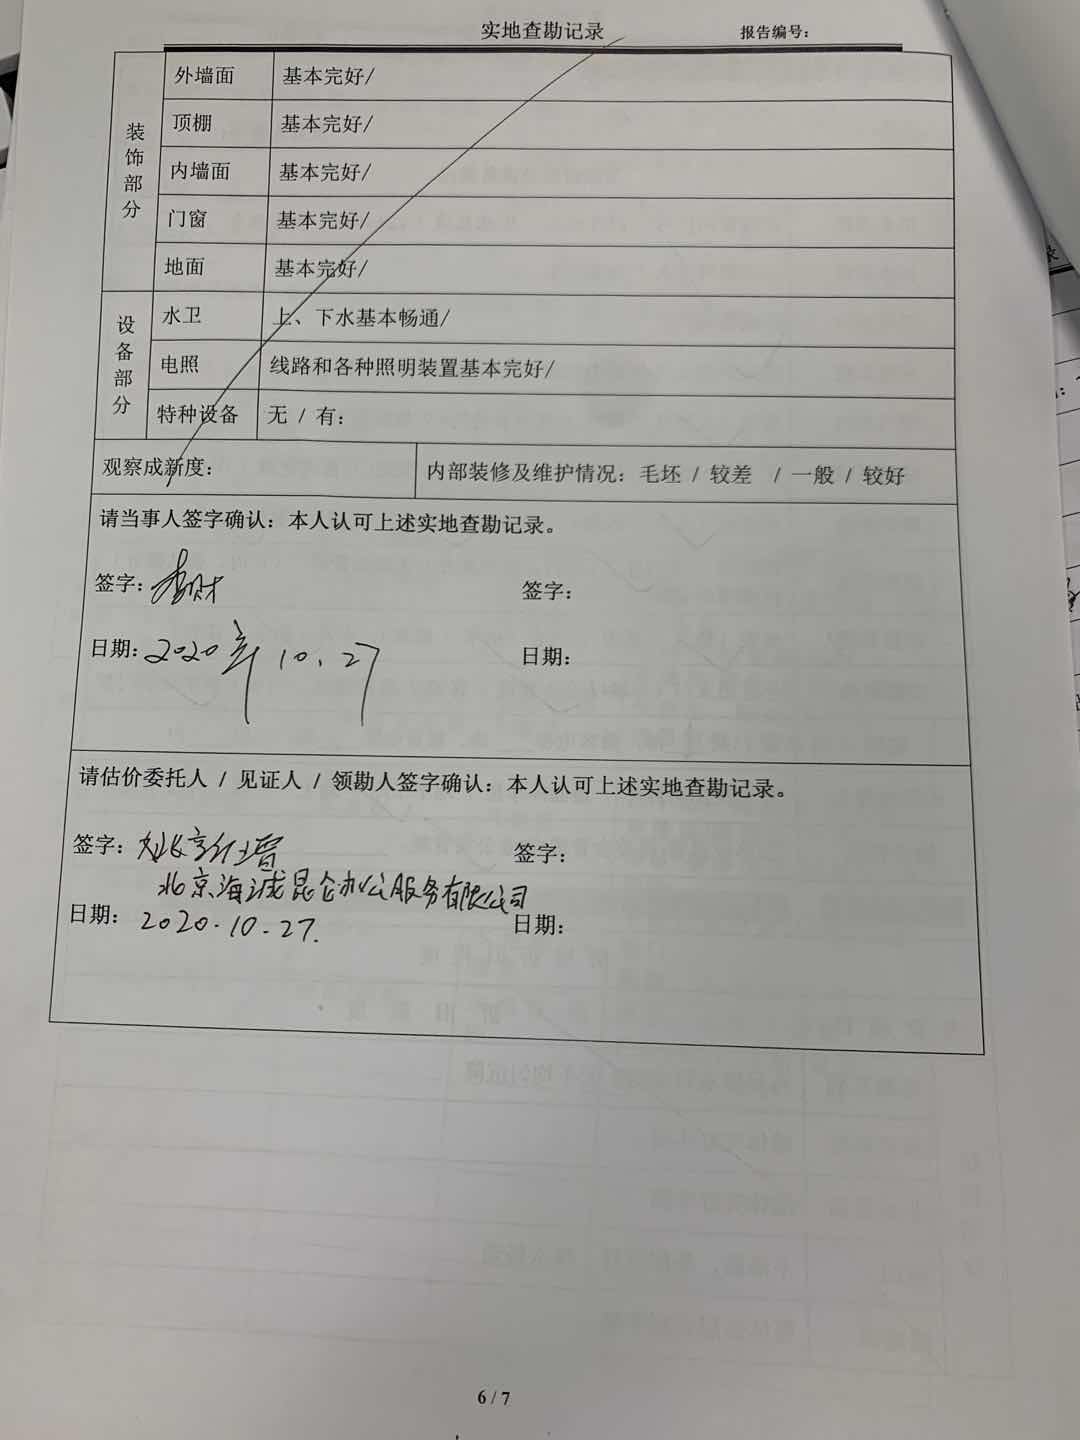 实地查勘记录 报告编号：
装饰部分
外墙面 基本完好/
顶棚 基本完好/
内墙面 基本完好/
门窗 基本完好/
地面 基本完好/
设备部分
水卫 上、下水基本畅通/
电照 线路和各种照明装置基本完好/
特种设备 无 / 有：
观察成新度： 内部装修及维护情况：毛坯 / 较差 / 一般 / 较好
请当事人签字确认：本人认可上述实地查勘记录。
签字： 签字：
日期：2020年10.27 日期：
请估价委托人 / 见证人 / 领勘人签字确认：本人认可上述实地查勘记录。
签字： 签字：
北京海诚昆仑办公服务有限公司
日期：2020.10.27. 日期：
6 / 7